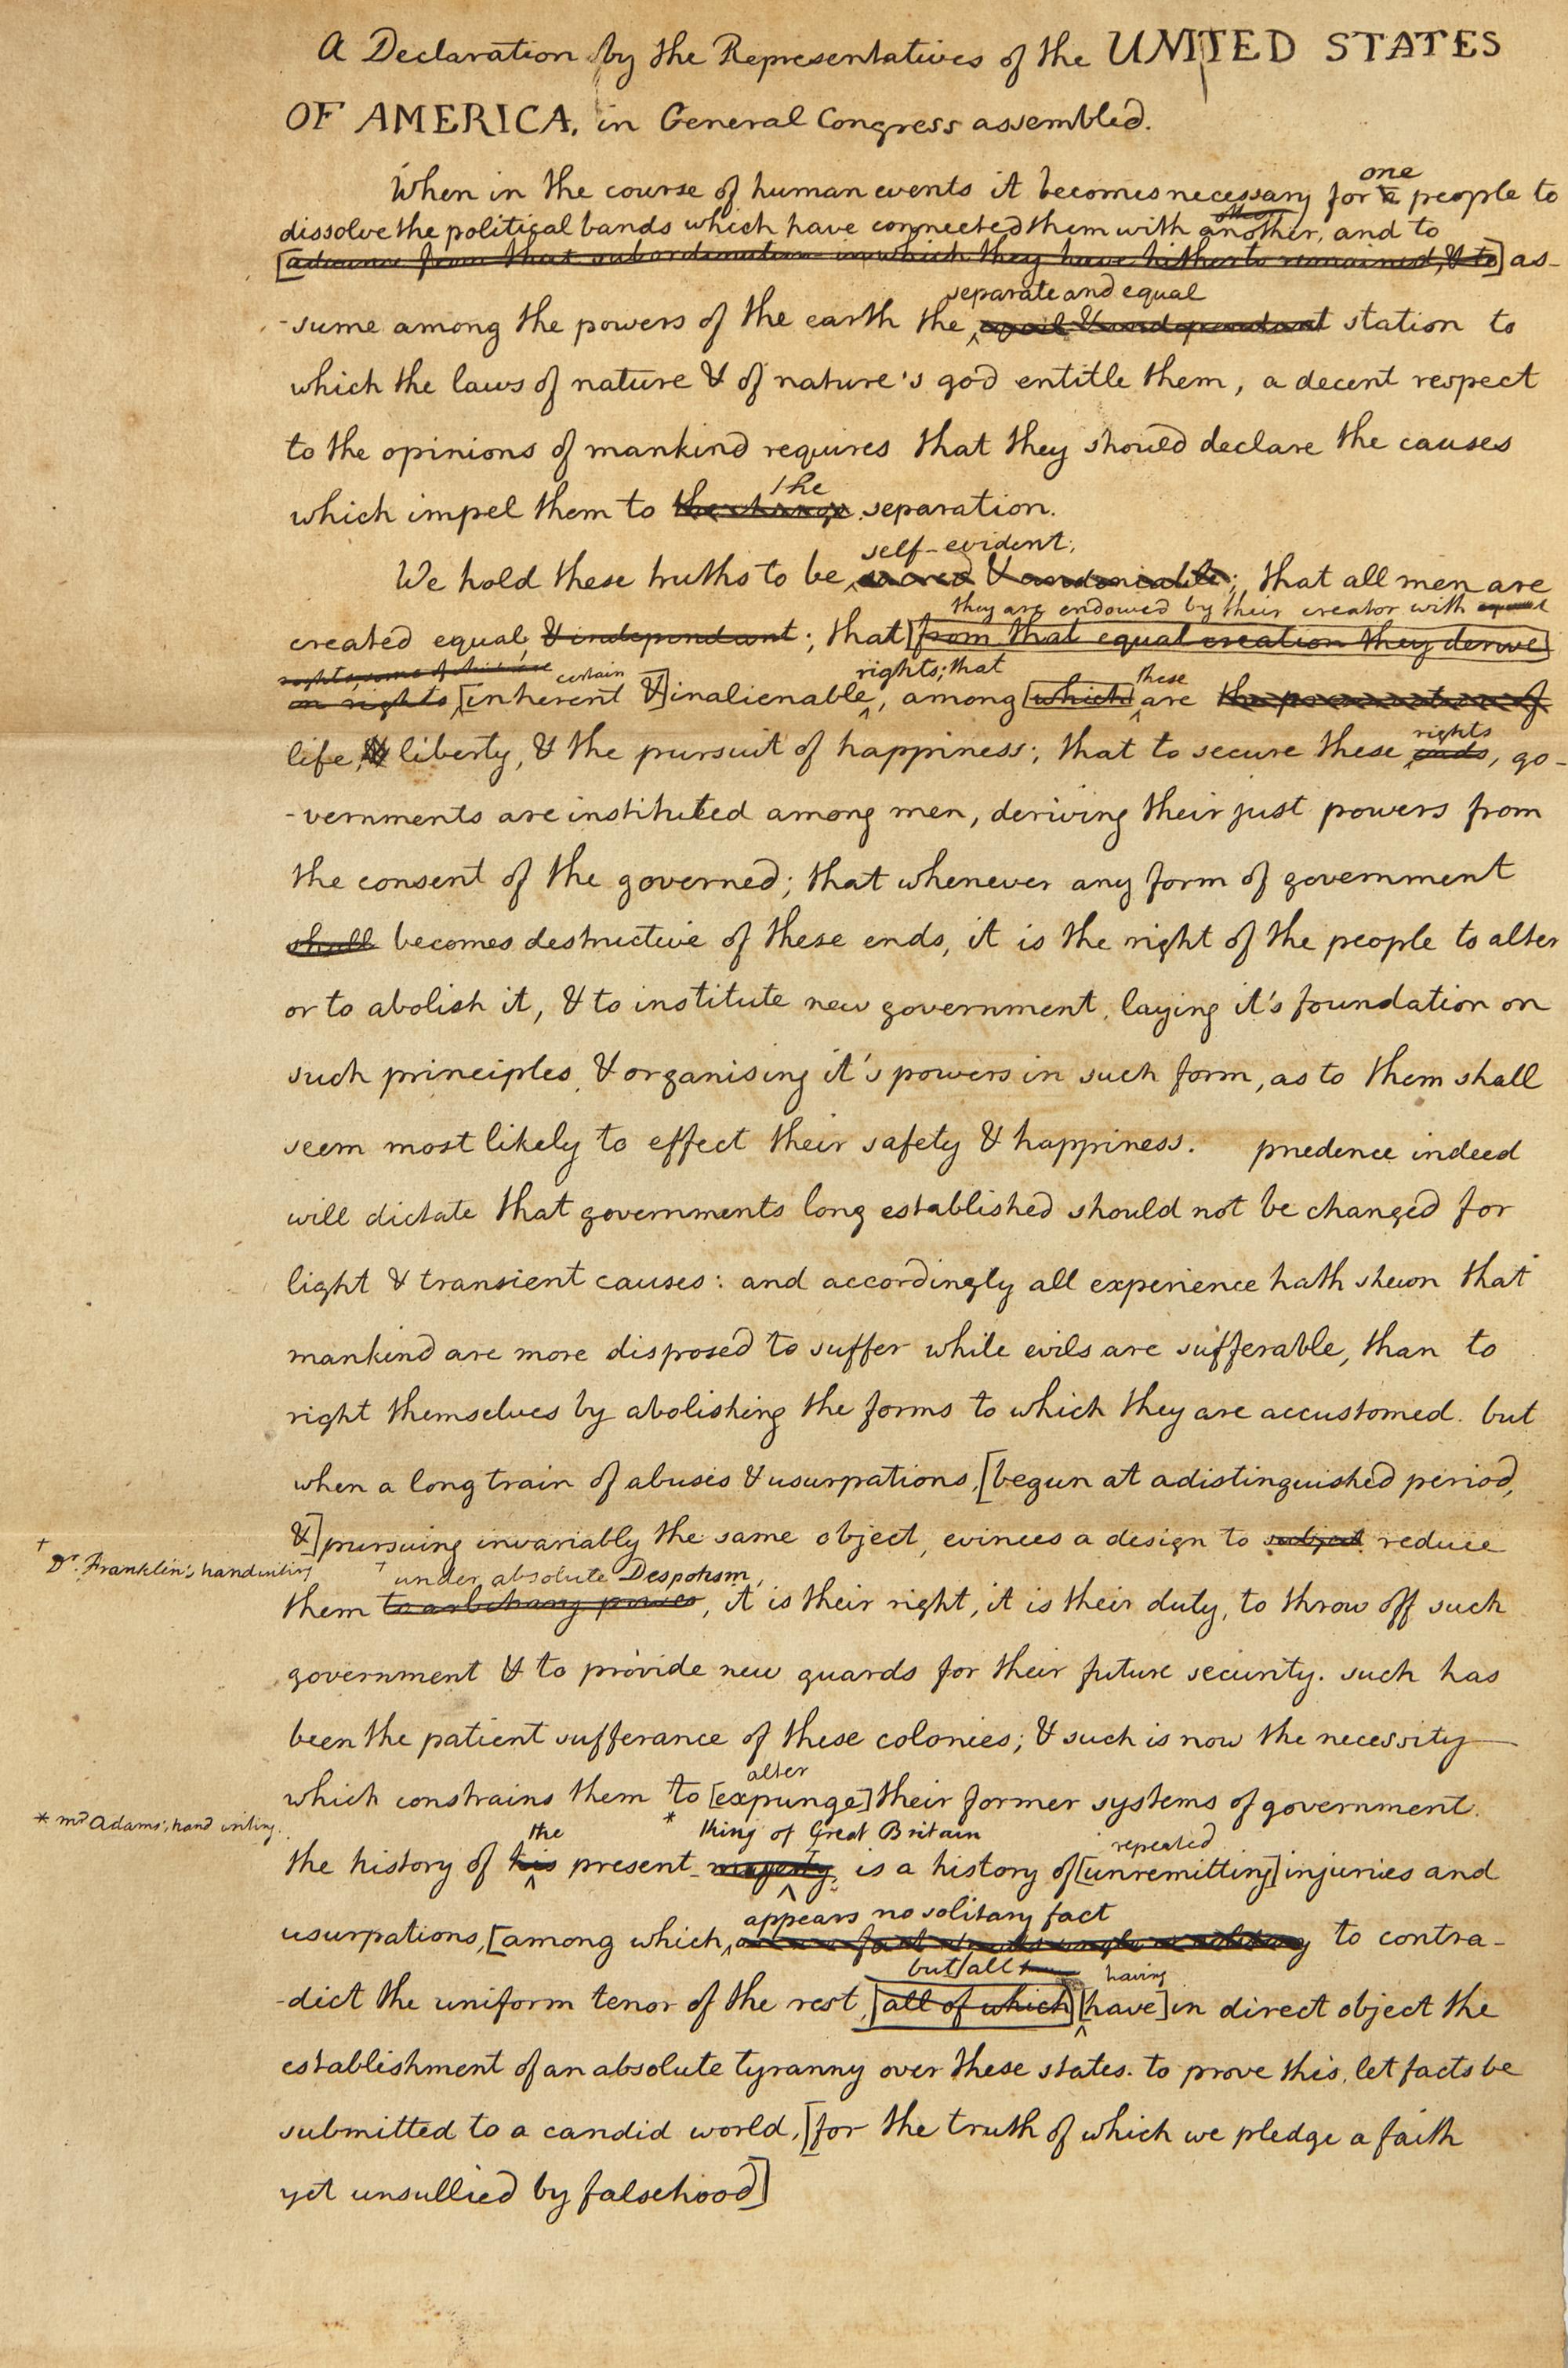 A Declaration by the Representatives of the UNITED STATES
OF AMERICA, in General Congress assembled.
one
When in the course of human events it becomes necessary for a people to
dissolve the political bands which have connected them with another, and to
advance from that subordination in which they have hitherto remained, & to] as-
separate and equal
-sume among the powers of the earth the equal & independant station to
which the laws of nature & of nature's god entitle them, a decent respect
to the opinions of mankind requires that they should declare the causes
the
which impel them to the change separation.
self-evident;
We hold these truths to be sacred & undeniable; that all men are
they are endowed by their creator with equal
created equal, & independant; that [from that equal creation they derive]
rights, some of which are certain rights; that these
in rights [inherent &] inalienable, among [which] are the preservation of
rights
life, & liberty, & the pursuit of happiness; that to secure these ends, go-
-vernments are instituted among men, deriving their just powers from
the consent of the governed; that whenever any form of government
shall becomes destructive of these ends, it is the right of the people to alter
or to abolish it, & to institute new government, laying it's foundation on
such principles & organising it's powers in such form, as to them shall
seem most likely to effect their safety & happiness. prudence indeed
will dictate that governments long established should not be changed for
light & transient causes: and accordingly all experience hath shewn that
mankind are more disposed to suffer while evils are sufferable, than to
right themselves by abolishing the forms to which they are accustomed. but
when a long train of abuses & usurpations, [begun at a distinguished period,
&] pursuing invariably the same object, evinces a design to subject reduce
† Dr. Franklin's handwriting † under absolute Despotism,
them to arbitrary power, it is their right, it is their duty, to throw off such
government & to provide new guards for their future security. such has
been the patient sufferance of these colonies; & such is now the necessity
alter
which constrains them to [expunge] their former systems of government.
* Mr Adams's hand writing. the * king of Great Britain repeated
the history of his present majesty, is a history of [unremitting] injuries and
appears no solitary fact
usurpations, [among which, to contra-
but all having
-dict the uniform tenor of the rest, [all of which] [have] in direct object the
establishment of an absolute tyranny over these states. to prove this, let facts be
submitted to a candid world, [for the truth of which we pledge a faith
yet unsullied by falsehood]